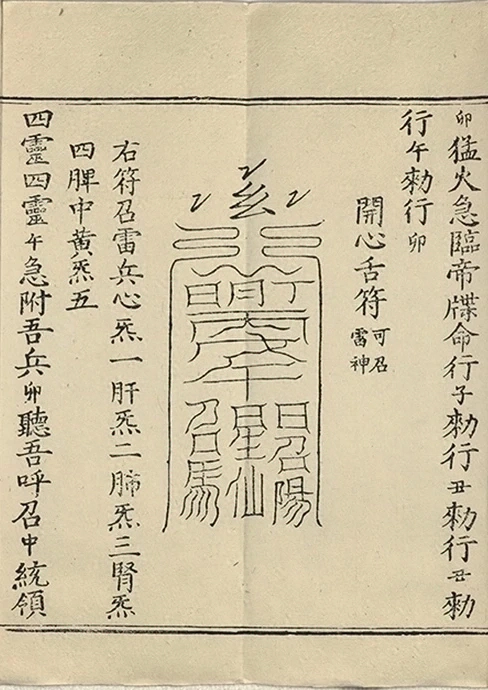 卯猛火急臨帝牒命行子勑行丑勑行丑勑
行午勑行卯
開心舌符可召雷神
右符召雷兵心炁一肝炁二肺炁三腎炁
四脾中黄炁五
四靈四靈午急附吾兵卯聽吾呼召中統領